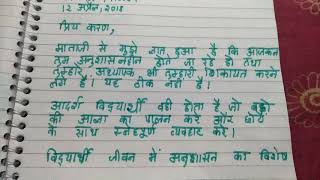 12 अप्रैल, 2018
प्रिय करण,
माताजी से मुझे ज्ञात हुआ है कि आजकल
तुम अनुशासनहीन होते जा रहे हो तथा
तुम्हारे अध्यापक भी तुम्हारी शिकायत करने
लगे हैं। यह ठीक नहीं है।
आदर्श विद्यार्थी वही होता है जो बड़ों
की आज्ञा का पालन करे और छोटों
के साथ स्नेहपूर्ण व्यवहार करे।
विद्यार्थी जीवन में अनुशासन का विशेष